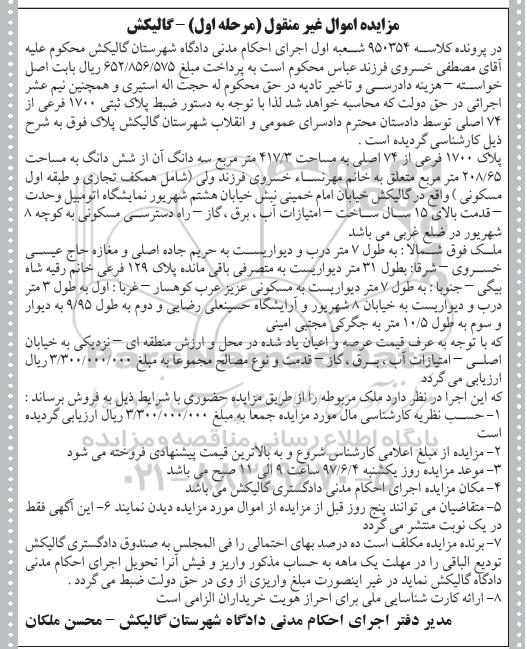 مزایده اموال غیر منقول (مرحله اول) – گالیکش
در پرونده کلاسه ۹۵۰۳۵۴ شعبه اول اجرای احکام مدنی دادگاه شهرستان گالیکش محکوم علیه
آقای مصطفی خسروی فرزند عباس محکوم است به پرداخت مبلغ ۶۵۲/۸۵۶/۵۷۵ ریال بابت اصل
خواسته – هزینه دادرسی و تاخیر تادیه در حق محکوم له حجت اله استیری و همچنین نیم عشر
اجرائی در حق دولت که محاسبه خواهد شد لذا با توجه به دستور ضبط پلاک ثبتی ۱۷۰۰ فرعی از
۷۴ اصلی توسط دادستان محترم دادسرای عمومی و انقلاب شهرستان گالیکش پلاک فوق به شرح
ذیل کارشناسی گردیده است .
پلاک ۱۷۰۰ فرعی از ۷۴ اصلی به مساحت ۴۱۷/۳ متر مربع سه دانگ آن از شش دانگ به مساحت
۲۰۸/۶۵ متر مربع متعلق به خانم مهرنساء خسروی فرزند ولی (شامل همکف تجاری و طبقه اول
مسکونی ) واقع در گالیکش خیابان امام خمینی نبش خیابان هشتم شهریور نمایشگاه اتومبیل وحدت
– قدمت بالای ۱۵ سال ساخت – امتیازات آب ، برق ، گاز – راه دسترسی مسکونی به کوچه ۸
شهریور در ضلع غربی می باشد
ملک فوق شمالا : به طول ۷ متر درب و دیواریست به حریم جاده اصلی و مغازه حاج عیسی
خسروی – شرقا: بطول ۳۱ متر دیواریست به متصرفی باقی مانده پلاک ۱۲۹ فرعی خانم رقیه شاه
بیگی – جنوبا : به طول ۷ متر دیواریست به مسکونی عزیز عرب کوهسار – غربا : اول به طول ۳ متر
درب و دیواریست به خیابان ۸ شهریور و آرایشگاه حسینعلی رضایی و دوم به طول ۹/۹۵ به دیوار
و سوم به طول ۱۰/۵ متر به جگرکی مجتبی امینی
که با توجه به عرف قیمت عرصه و اعیان یاد شده در محل و ارزش منطقه ای – نزدیکی به خیابان
اصلی – امتیازات آب ، برق ، گاز – قدمت و نوع مصالح مجموعا به مبلغ ۳/۳۰۰/۰۰۰/۰۰۰ ریال
ارزیابی می گردد
که این اجرا در نظر دارد ملک مربوطه را از طریق مزایده حضوری با شرایط ذیل به فروش برساند :
۱- حسب نظریه کارشناسی مال مورد مزایده جمعا به مبلغ ۳/۳۰۰/۰۰۰/۰۰۰ ریال ارزیابی گردیده
است
۲- مزایده از مبلغ اعلامی کارشناس شروع و به بالاترین قیمت پیشنهادی فروخته می شود
۳- موعد مزایده روز یکشنبه ۹۷/۶/۴ ساعت ۹ الی ۱۱ صبح می باشد
۴- مکان مزایده اجرای احکام مدنی دادگستری گالیکش می باشد
۵- متقاضیان می توانند پنج روز قبل از مزایده از اموال مورد مزایده دیدن نمایند ۶- این آگهی فقط
در یک نوبت منتشر می گردد
۷- برنده مزایده مکلف است ده درصد بهای احتمالی را فی المجلس به صندوق دادگستری گالیکش
تودیع الباقی را در مهلت یک ماهه به حساب مذکور واریز و فیش آنرا تحویل اجرای احکام مدنی
دادگاه گالیکش نماید در غیر اینصورت مبلغ واریزی از وی در حق دولت ضبط می گردد .
۸- ارائه کارت شناسایی ملی برای احراز هویت خریداران الزامی است
مدیر دفتر اجرای احکام مدنی دادگاه شهرستان گالیکش – محسن ملکان